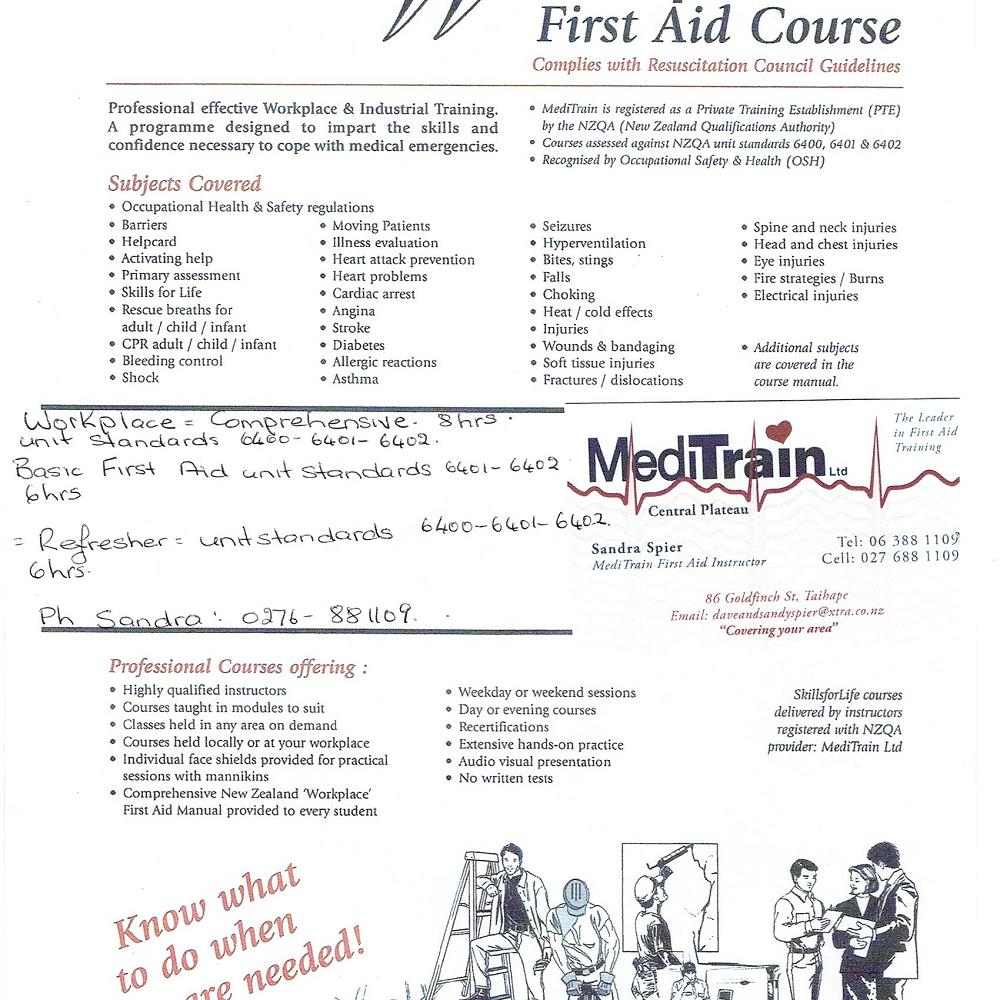 First Aid Course
Complies with Resuscitation Council Guidelines
Professional effective Workplace & Industrial Training.
A programme designed to impart the skills and
confidence necessary to cope with medical emergencies.
• MediTrain is registered as a Private Training Establishment (PTE)
by the NZQA (New Zealand Qualifications Authority)
• Courses assessed against NZQA unit standards 6400, 6401 & 6402
• Recognised by Occupational Safety & Health (OSH)
Subjects Covered
• Occupational Health & Safety regulations
• Barriers
• Helpcard
• Activating help
• Primary assessment
• Skills for Life
• Rescue breaths for
adult / child / infant
• CPR adult / child / infant
• Bleeding control
• Shock
• Moving Patients
• Illness evaluation
• Heart attack prevention
• Heart problems
• Cardiac arrest
• Angina
• Stroke
• Diabetes
• Allergic reactions
• Asthma
• Seizures
• Hyperventilation
• Bites, stings
• Falls
• Choking
• Heat / cold effects
• Injuries
• Wounds & bandaging
• Soft tissue injuries
• Fractures / dislocations
• Spine and neck injuries
• Head and chest injuries
• Eye injuries
• Fire strategies / Burns
• Electrical injuries
• Additional subjects
are covered in the
course manual.
Workplace = Comprehensive. 8hrs.
unit standards 6400-6401-6402.
Basic First Aid unit standards 6401-6402
6hrs
= Refresher = unit standards 6400-6401-6402.
6hrs.
Ph Sandra: 0276-881109.
The Leader
in First Aid
Training
MediTrain Ltd
Central Plateau
Sandra Spier
MediTrain First Aid Instructor
Tel: 06 388 1109
Cell: 027 688 1109
86 Goldfinch St, Taihape
Email: daveandsandyspier@xtra.co.nz
"Covering your area"
Professional Courses offering :
• Highly qualified instructors
• Courses taught in modules to suit
• Classes held in any area on demand
• Courses held locally or at your workplace
• Individual face shields provided for practical
sessions with mannikins
• Comprehensive New Zealand 'Workplace'
First Aid Manual provided to every student
• Weekday or weekend sessions
• Day or evening courses
• Recertifications
• Extensive hands-on practice
• Audio visual presentation
• No written tests
SkillsforLife courses
delivered by instructors
registered with NZQA
provider: MediTrain Ltd
Know what
to do when
are needed!